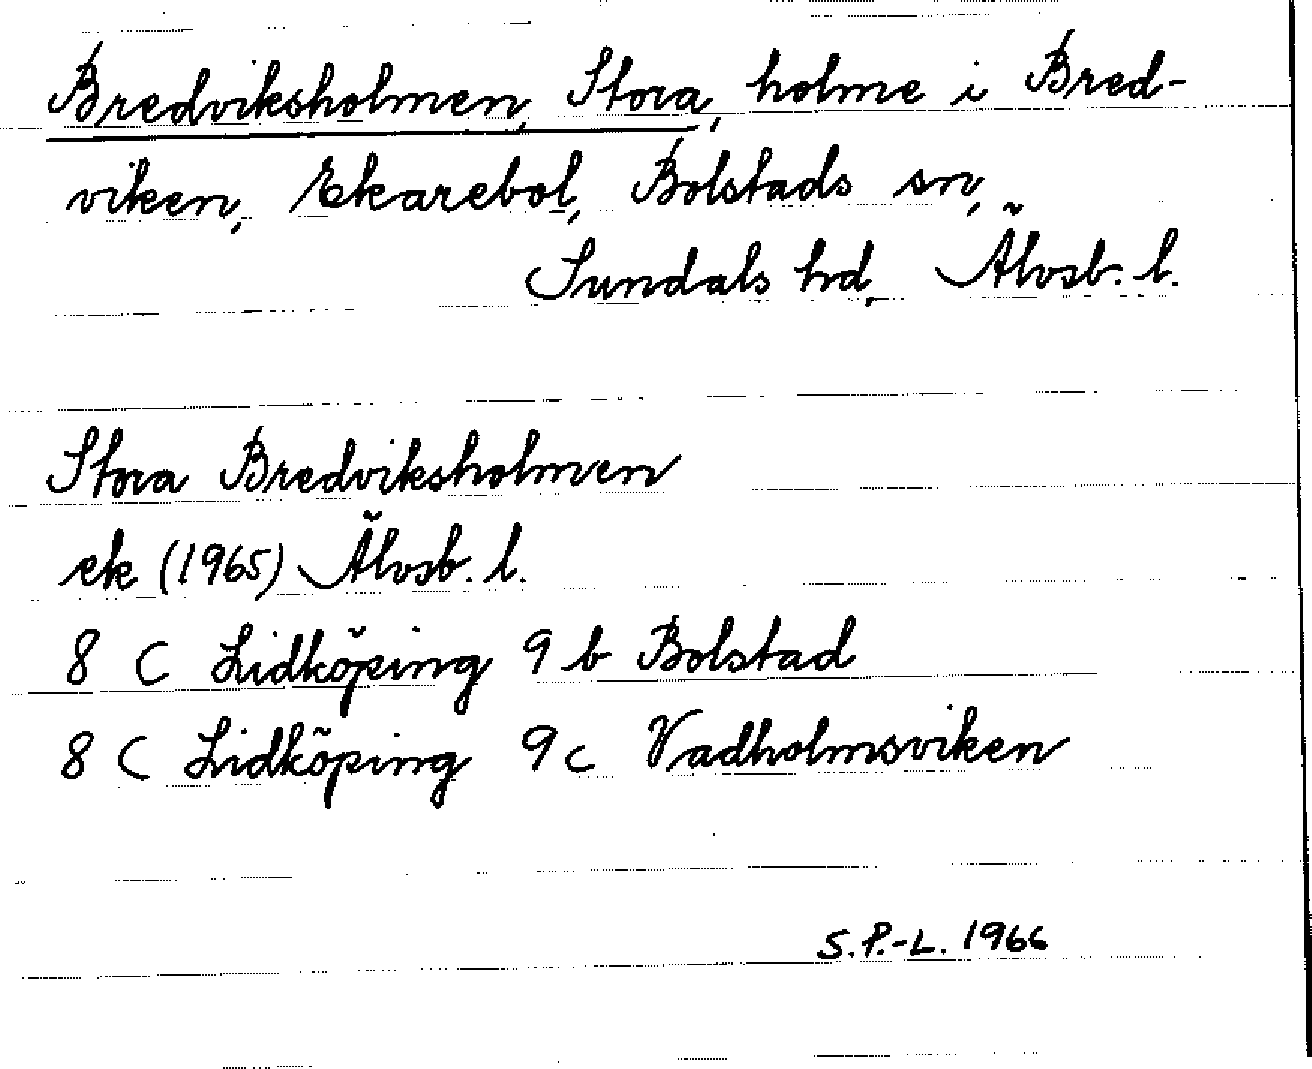 Bredviksholmen, Stora, holme i Bred-
viken, Ekarebol, Bolstads sn,
Sundals hd, Älvsb. l.
Stora Bredviksholmen
ek (1965) Älvsb. l.
8 C Lidköping 9 b Bolstad
8 C Lidköping 9 c Vadholmsviken
S.P.-L. 1966